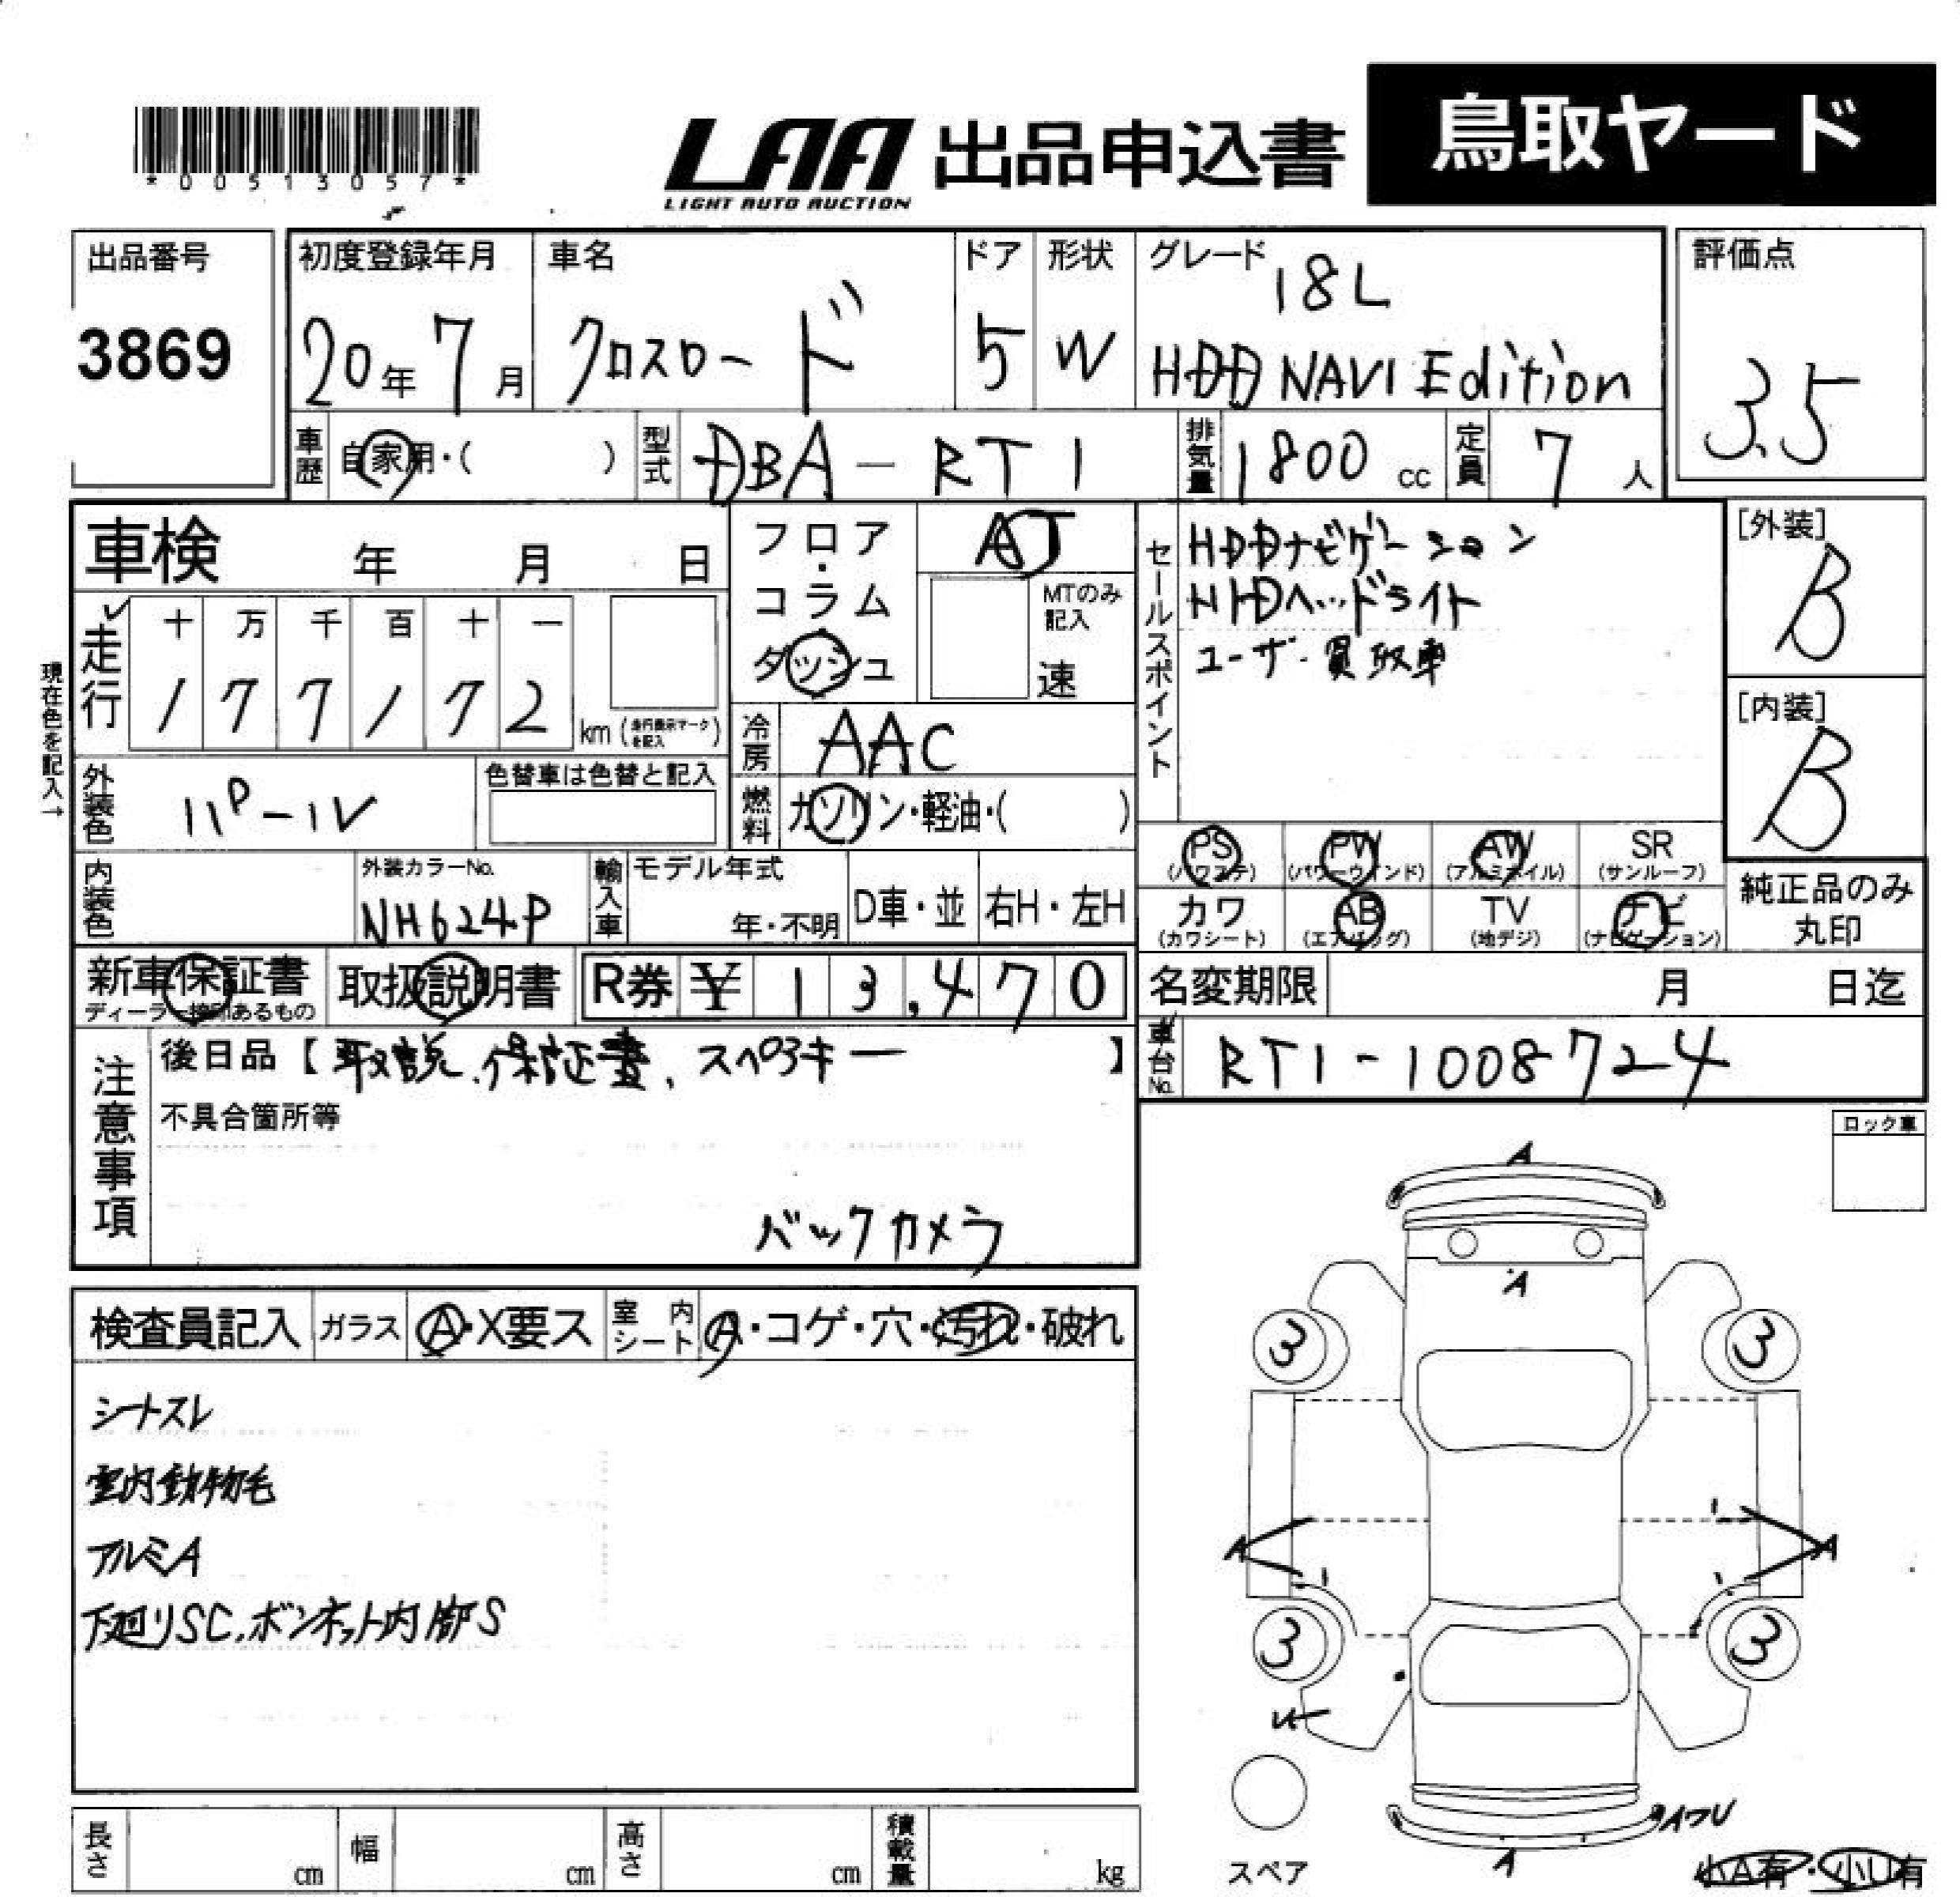 *00513057*
LAA 出品申込書 鳥取ヤード
LIGHT AUTO AUCTION
出品番号 3869
初度登録年月 20年7月
車名 クロスロード
ドア 5
形状 W
グレード 18L
HDD NAVI Edition
評価点 3.5
車歴 自家用・( )
型式 DBA-RT1
排気量 1800 cc
定員 7 人
車検 年 月 日
走行 十 万 千 百 十 一
1 7 7 1 7 2 km (走行表示マークを記入)
現在色を記入→
フロア・コラム
ダッシュ
AT
MTのみ記入
速
冷房 AAC
燃料 ガソリン・軽油・( )
セールスポイント
HDDナビゲーション
HIDヘッドライト
ユーザー買取車
[外装] B
[内装] B
外装色 パール
色替車は色替と記入
内装色
外装カラーNo. NH624P
輸入車 モデル年式 年・不明 D車・並 右H・左H
PS (パワステ) PW (パワーウインド) AW (アルミホイル) SR (サンルーフ)
カワ (カワシート) AB (エアバッグ) TV (地デジ) ナビ (ナビゲーション)
純正品のみ丸印
新車保証書 ディーラー捺印あるもの
取扱説明書
R券 ¥ 13,470
名変期限 月 日迄
車台No. RT1-1008724
注意事項
後日品【取説、保証書、スペアキー】
不具合箇所等
バックカメラ
ロック車
検査員記入 ガラス A・X要ス 室内シート A・コゲ・穴・汚れ・破れ
シートスレ
室内動物毛
アルミA
下廻りSC、ボンネット内部S
A
A
3 3
A A
3 3
AワU
A
スペア
小A有・小U有
長さ cm 幅 cm 高さ cm 積載量 kg